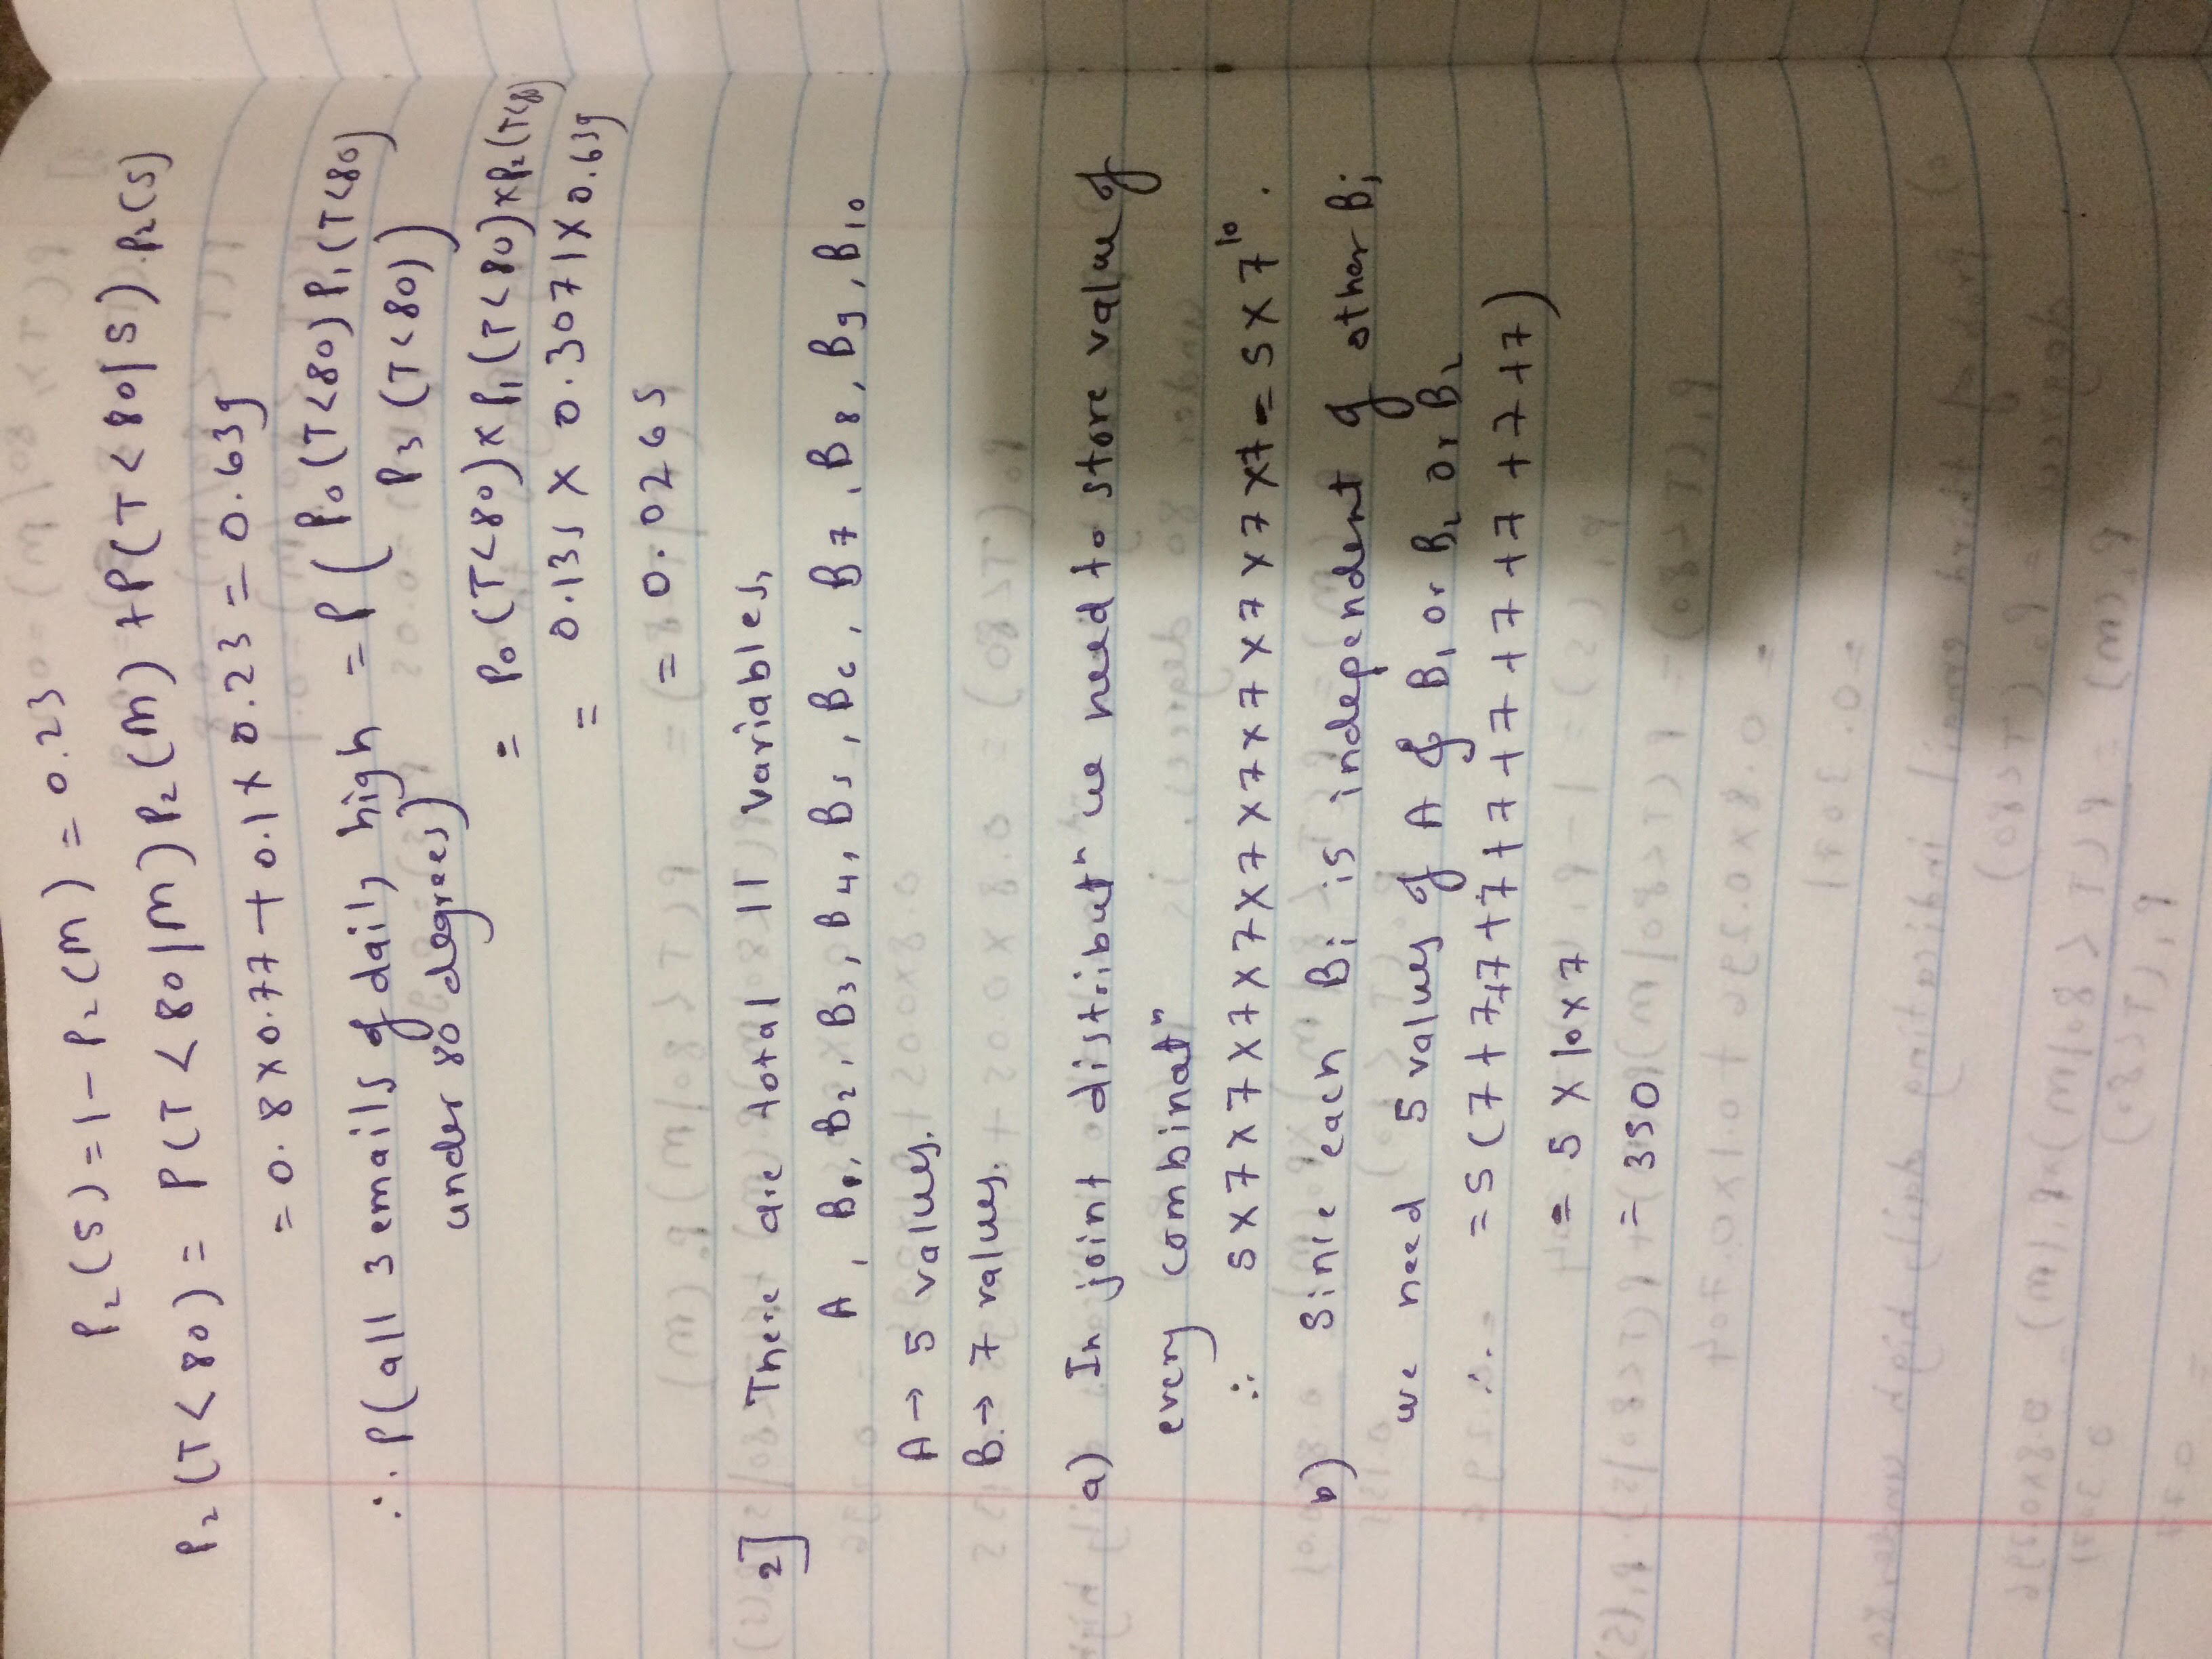 P₂(S) = 1 - P₂(M) = 0.23
P₂(T<80) = P(T<80|M) P₂(M) + P(T<80|S).P₂(S)
= 0.8 x 0.77 + 0.1 x 0.23 = 0.639
∴ P(all 3 emails of daily high under 80 degrees) = P(P₀(T<80) P₁(T<80)
P₃(T<80))
= P₀(T<80) x P₁(T<80) x P₂(T<80)
= 0.135 x 0.3071 x 0.639
= 0.0265
2] There are total 11 variables,
A, B₁, B₂, B₃, B₄, B₅, B₆, B₇, B₈, B₉, B₁₀
A → 5 values.
B → 7 values.
a) In joint distributⁿ we need to store value of
every combinatⁿ
∴ 5 x 7 x 7 x 7 x 7 x 7 x 7 x 7 x 7 x 7 x 7 = 5 x 7¹⁰.
b) Since each Bi is independent of other Bj
we need 5 values of A & B₁ or B₂ or B₂
∴ = 5 (7+7+7+7+7+7+7+7+7+7)
= 5 x 10 x 7
= 350